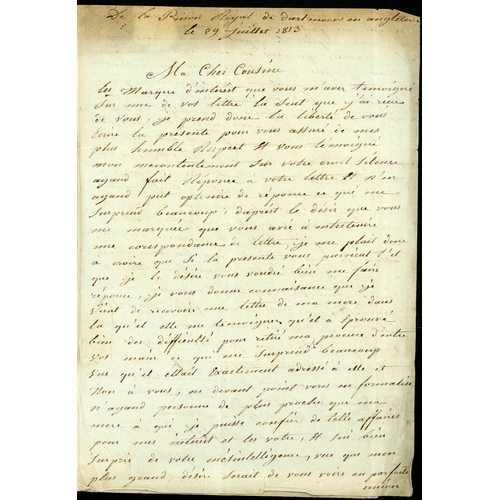 De la Prison Royal de dartmoor en angleterre
le 29 Juillet 1813
Ma Cher Cousine
les Marque d'interêt que vous m'aver temoigné
Sur une de vos lettre la Seul que j'ai reçu
de vous, je prend donc la liberté de vous
Ecrire la presente pour vous assuré de mes
plus humble Respect Et vous temoigné
mon mecontentement Sur votre cruel Silence
ayand fait Reponce à votre lettre Et n'en
ayand put optenire de réponce ce qui me
Surprend beaucoup, d'aprest le désir que vous
me marquer que vous avié à entretenire
une corespondance de lettre, je me plait donc
à croire que Si la presente vous parvient t'el
que je le désire vous voudré bien me faire
réponce, je vous donne connaisance que je
vient de recevoire une lettre de ma mere dans
la qu'el elle me temoigne qu'el à Eprouvé
bien des difficulté pour retiré ma procure d'entre
vos main ce qui me Surprend beaucoup
vue qu'el ettait Exartement adressé à elle et
Non à vous, ne devant point vous en formalisé
n'ayand personne de plus proche que ma
mere à qui je puisse confier de telle affaires
pour mes intérêt et les votre, Et Sui bien
Surpris de votre mésintelligence, vue que mon
plus grand désire Serait de vous voire en parfaite